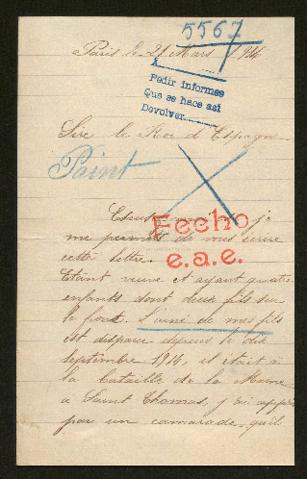 5567
Paris le 21 Mars 1916
A
Pedir informes
Que se hace así
Devolver
Sire le Roi d'Espagne
Paint
Fecho
e.a.e.
Excusez si je
me permets de vous écrire
cette lettre.
Etant veuve et ayant quatre
enfants dont deux fils sur
le front. L'ainé de mes fils
est disparu depuis le dix
septembre 1914, il était à
la bataille de la Marne
a Saint Thomas, j'ai appris
par un camarade, qu'il